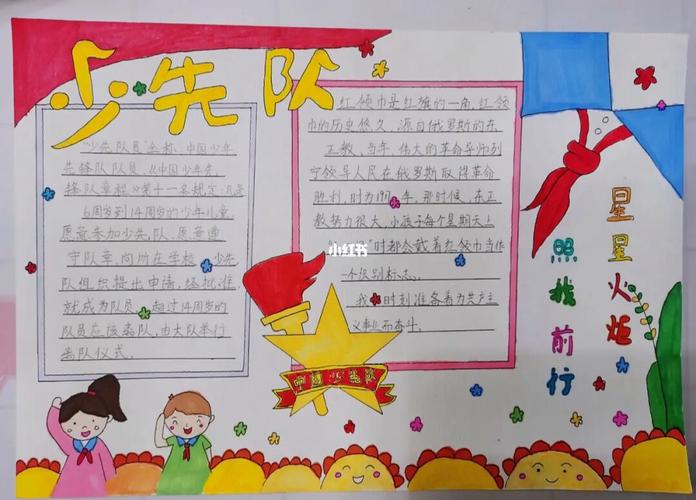 少先队
"少先队员"全称:中国少年
先锋队队员。《中国少年先
锋队章程》第十一条规定:凡是
6周岁到14周岁的少年儿童
愿意参加少先队,愿意遵
守队章,向所在学校少先
队组织提出申请,经批准
就成为队员。超过14周岁的
队员应该离队,由大队举行
离队仪式。
红领巾是红旗的一角,红领
巾的历史悠久,源自俄罗斯的东
正教,当年,伟大的革命导师列
宁领导人民在俄罗斯取得革命
胜利,时为19 年,那时候,东正
教势力很大,小孩子每个星期天上
时都会戴着红领巾当作
一个识别标志。
我 时刻准备着为共产主
义事业而奋斗。
小红书
中国少先队
星星火炬
照我前行